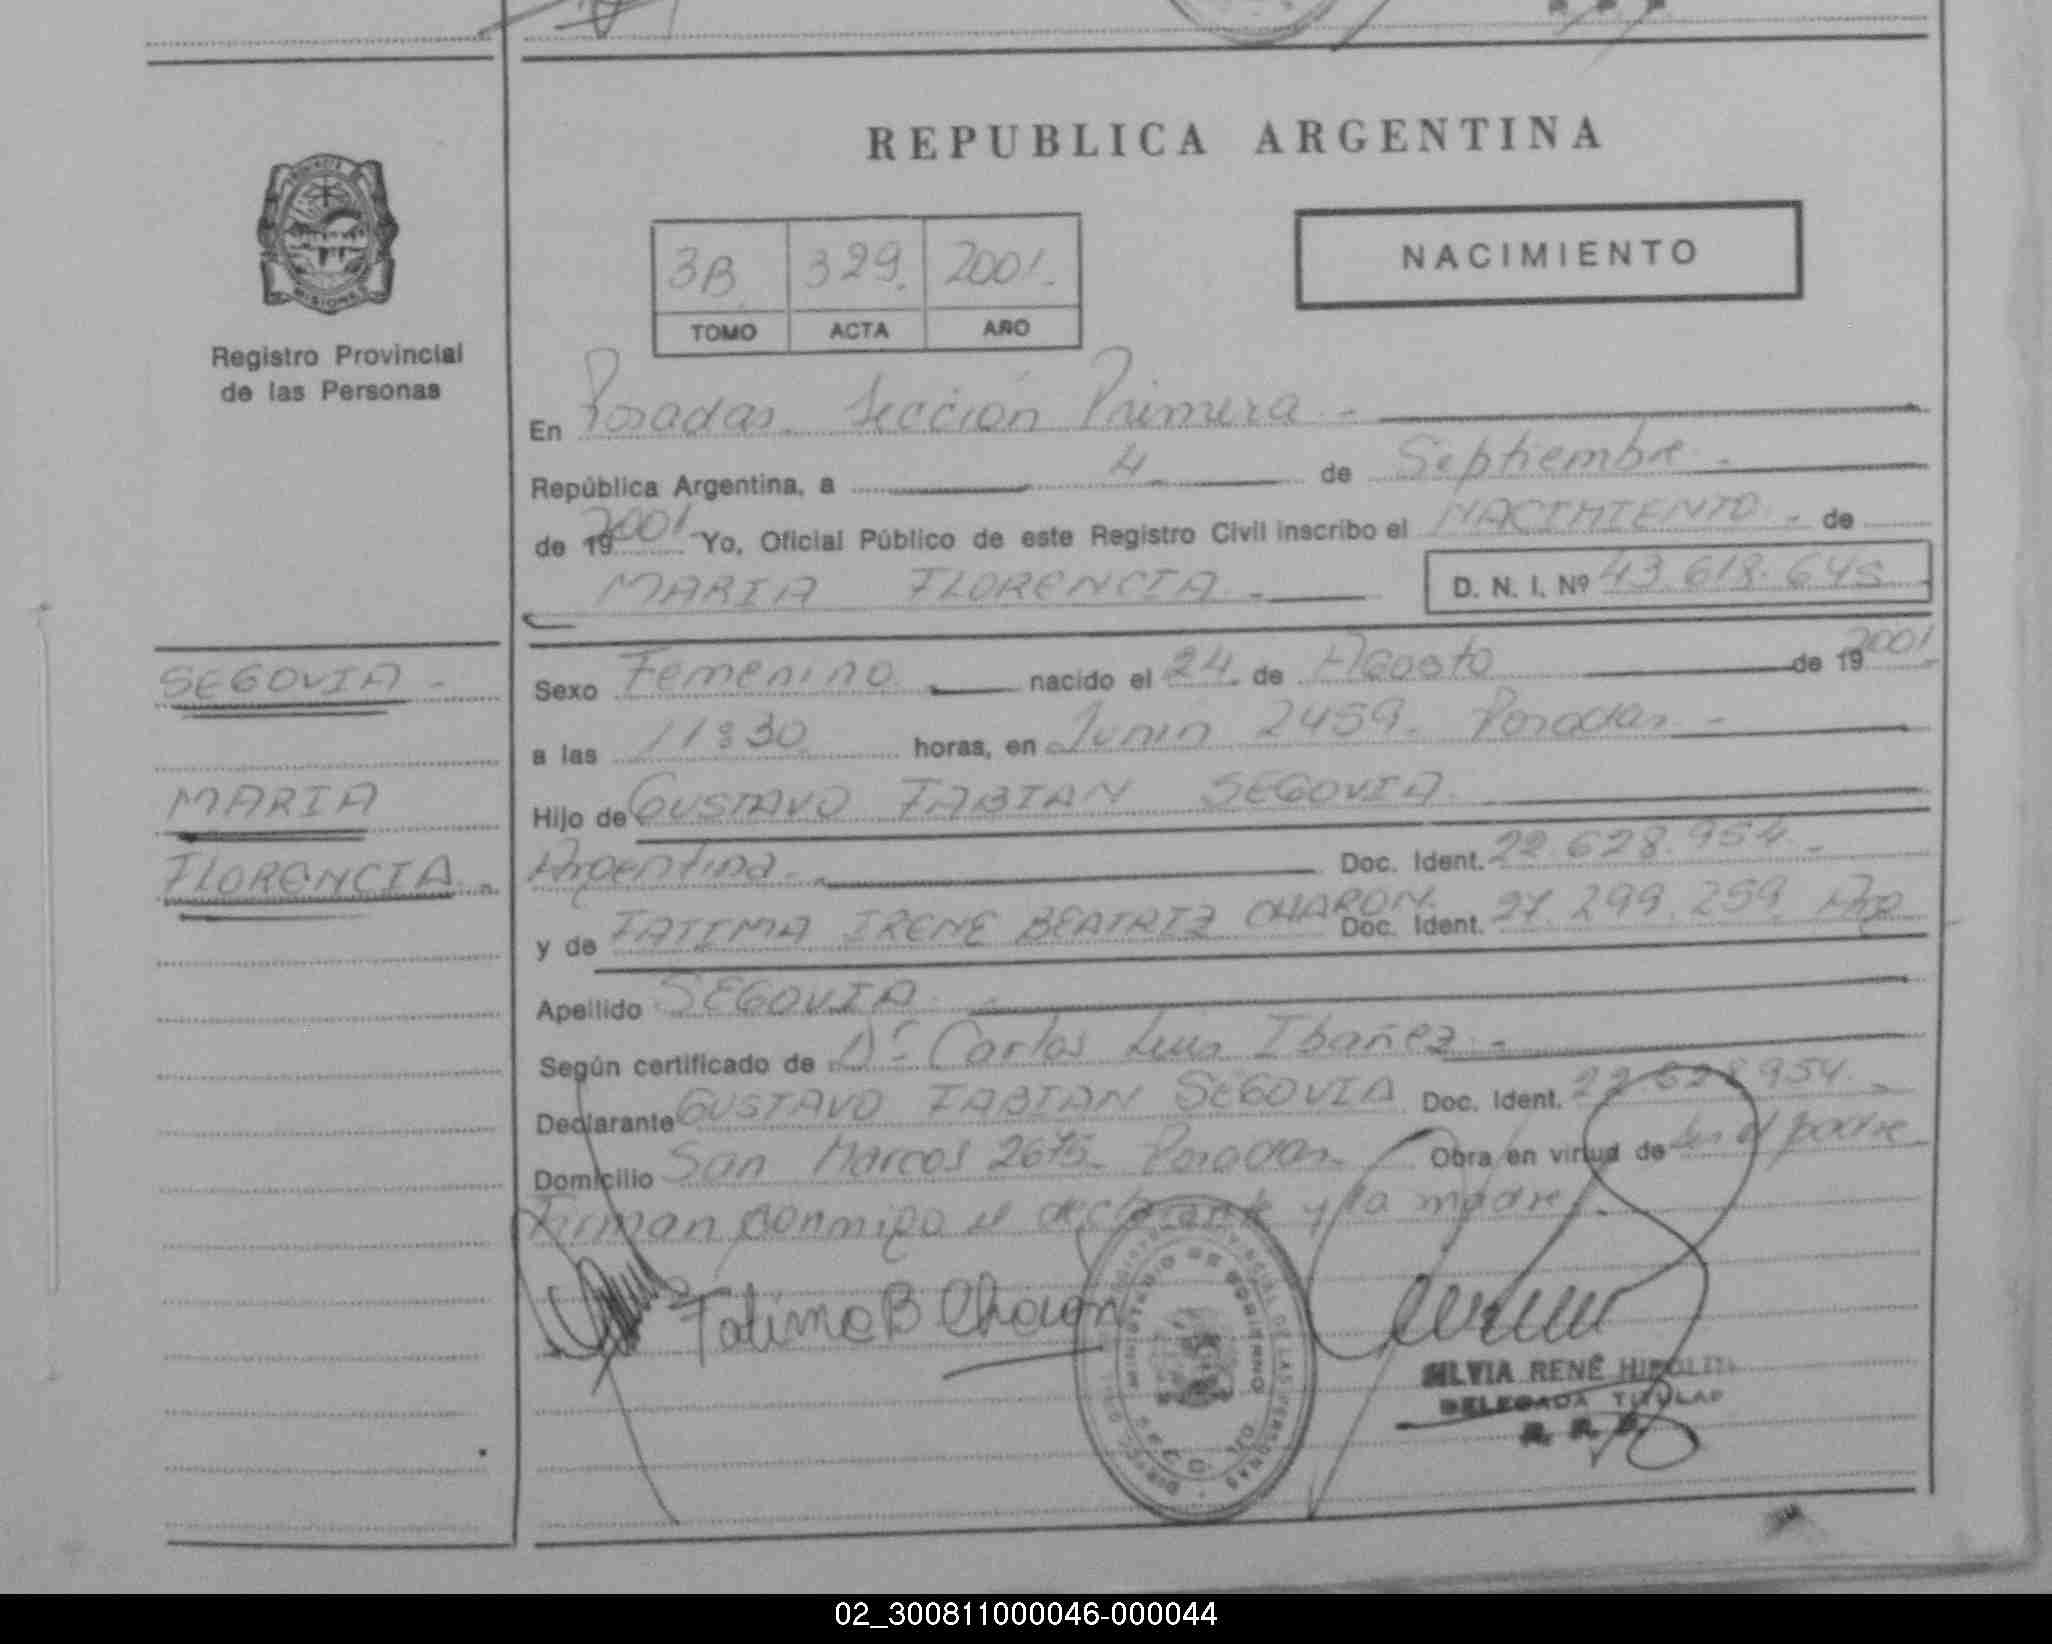 REPUBLICA ARGENTINA
NACIMIENTO
3B. 329. 2001.
TOMO ACTA AÑO
Registro Provincial
de las Personas
En Posadas. Sección Primera -
República Argentina, a 4 de Septiembre -
de 19 2001 Yo, Oficial Público de este Registro Civil inscribo el NACIMIENTO - de
MARIA FLORENCIA - D. N. I. Nº 43.618.645
SEGOVIA -
MARIA
FLORENCIA -
Sexo Femenino nacido el 24 de Agosto de 19 2001
a las 11:30 horas, en Junin 2459. Posadas -
Hijo de GUSTAVO FABIAN SEGOVIA
Argentina - Doc. Ident. 22.628.954 -
y de FATIMA IRENE BEATRIZ CHARON. Doc. Ident. 27.299.259. Arg
Apellido SEGOVIA -
Según certificado de Dr. Carlos Luis Ibañez -
Declarante GUSTAVO FABIAN SEGOVIA Doc. Ident. 22.628.954 -
Domicilio San Marcos 2675. Posadas - Obra en virtud de ser el padre
Firman conmigo el declarante y la madre -
Fatima B Charon
SILVIA RENÉ HIPOLITO
DELEGADA TITULAR
R. P. P.
02_300811000046-000044